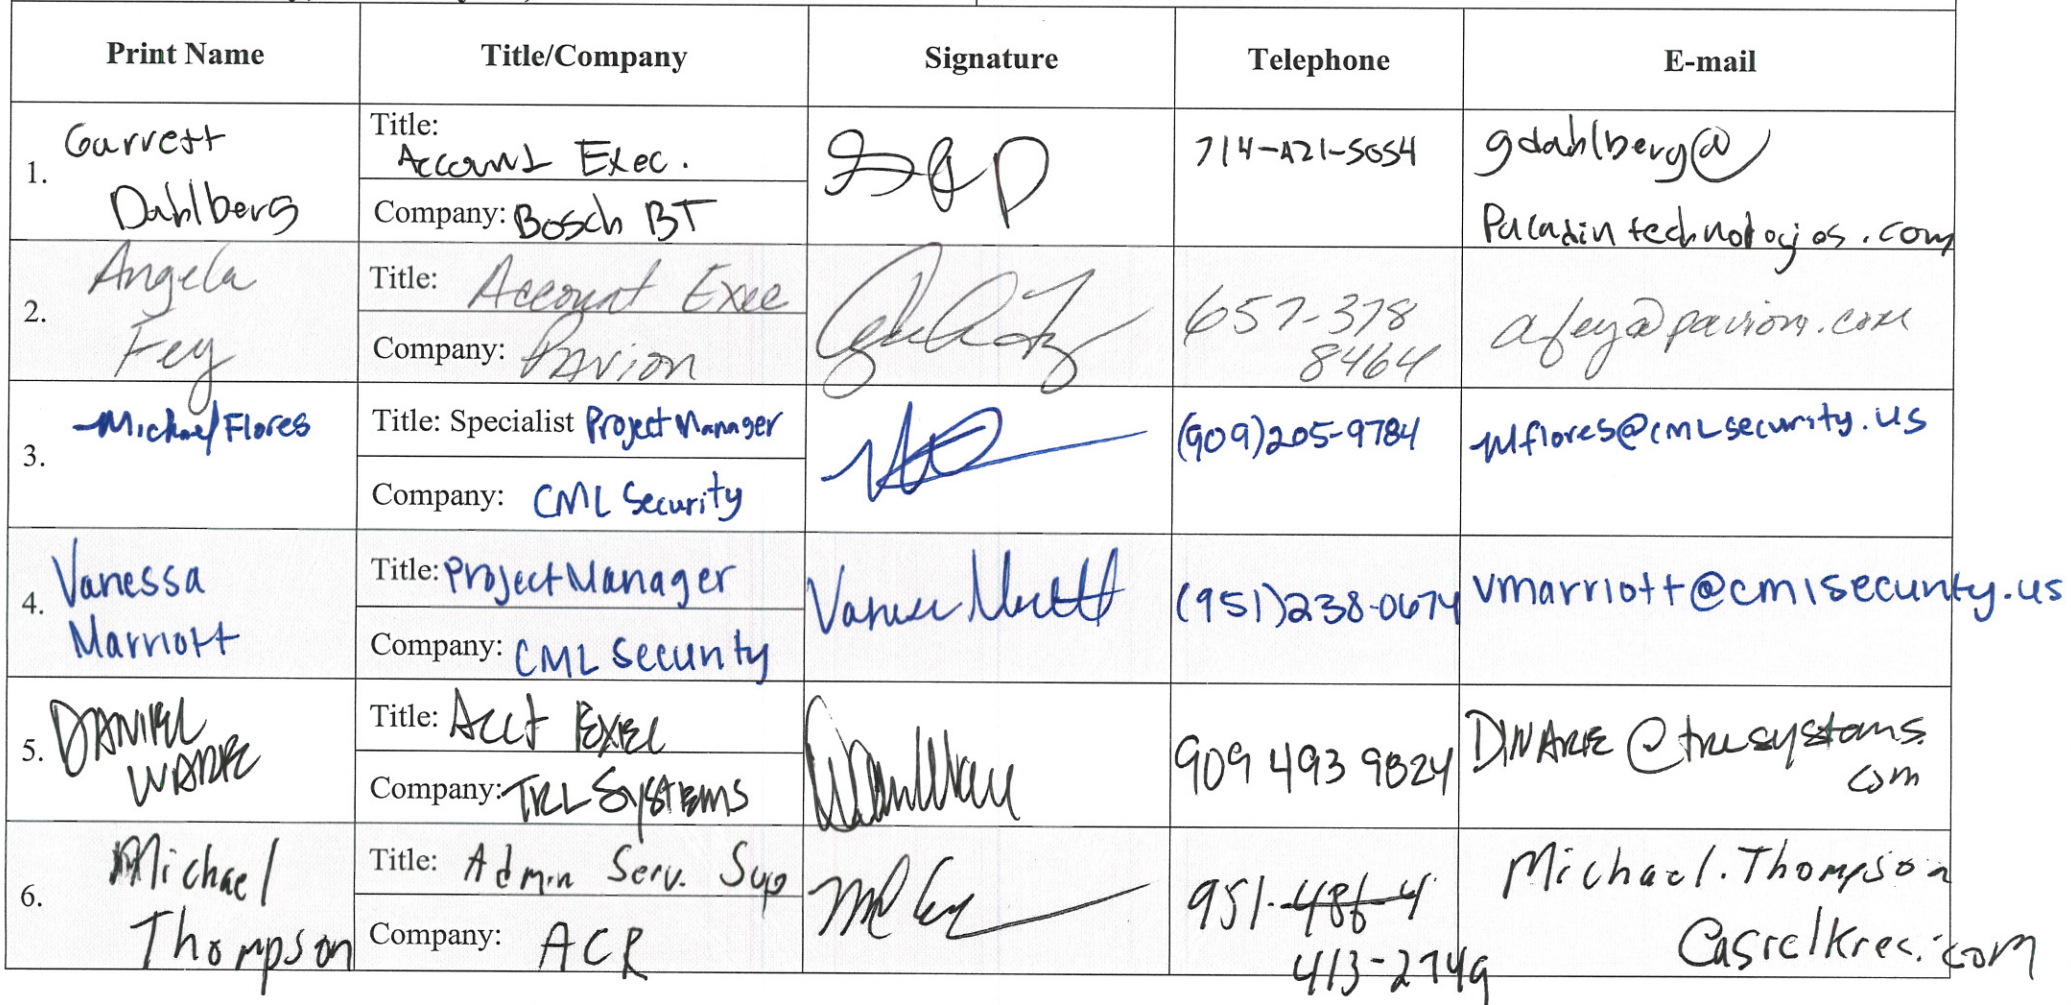 Print Name Title/Company Signature Telephone E-mail
1. Garrett Dahlberg
Title: Account Exec.
Company: Bosch BT
714-A21-5054
gdahlberg@
Paladintechnologies.com
2. Angela Fey
Title: Account Exec
Company: PAvion
657-378
8464
afey@pavion.com
3. Michael Flores
Title: Specialist Project Manager
Company: CML Security
(909)205-9784
mflores@CMLsecurity.us
4. Vanessa Marriott
Title: Project Manager
Company: CML Security
(951)238-0674
vmarriott@cmlsecurity.us
5. DANIEL WARE
Title: Acct EXEC
Company: TRL SYSTEMS
909 493 9824
DWARE@trlsystems.
com
6. Michael Thompson
Title: Admin Serv. Sup
Company: ACR
951-486-4
413-2749
Michael.Thompson